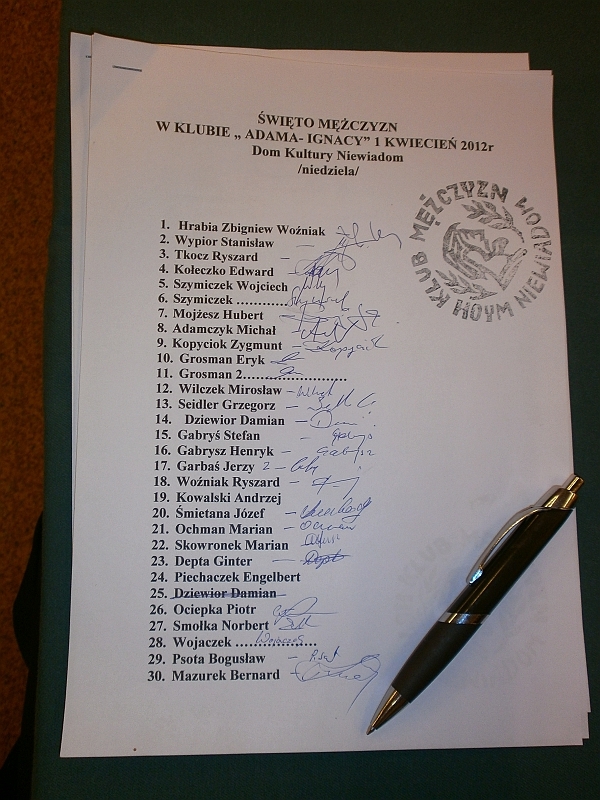 ŚWIĘTO MĘŻCZYZN
W KLUBIE „ ADAMA- IGNACY” 1 KWIECIEŃ 2012r
Dom Kultury Niewiadom
/niedziela/
KLUB MĘŻCZYZN
MOYM NIEWIADOM
1. Hrabia Zbigniew Woźniak
2. Wypior Stanisław –
3. Tkocz Ryszard –
4. Kołeczko Edward –
5. Szymiczek Wojciech
6. Szymiczek ............
7. Mojżesz Hubert –
8. Adamczyk Michał
9. Kopyciok Zygmunt –
10. Grosman Eryk
11. Grosman 2........................
12. Wilczek Mirosław –
13. Seidler Grzegorz –
14. Dziewior Damian –
15. Gabryś Stefan
16. Gabrysz Henryk – Gabrysz
17. Garbaś Jerzy 2 –
18. Woźniak Ryszard –
19. Kowalski Andrzej
20. Śmietana Józef –
21. Ochman Marian – Ochman
22. Skowronek Marian
23. Depta Ginter – Depta
24. Piechaczek Engelbert
25. Dziewior Damian
26. Ociepka Piotr
27. Smołka Norbert
28. Wojaczek .................. Wojaczek
29. Psota Bogusław – Psota
30. Mazurek Bernard –